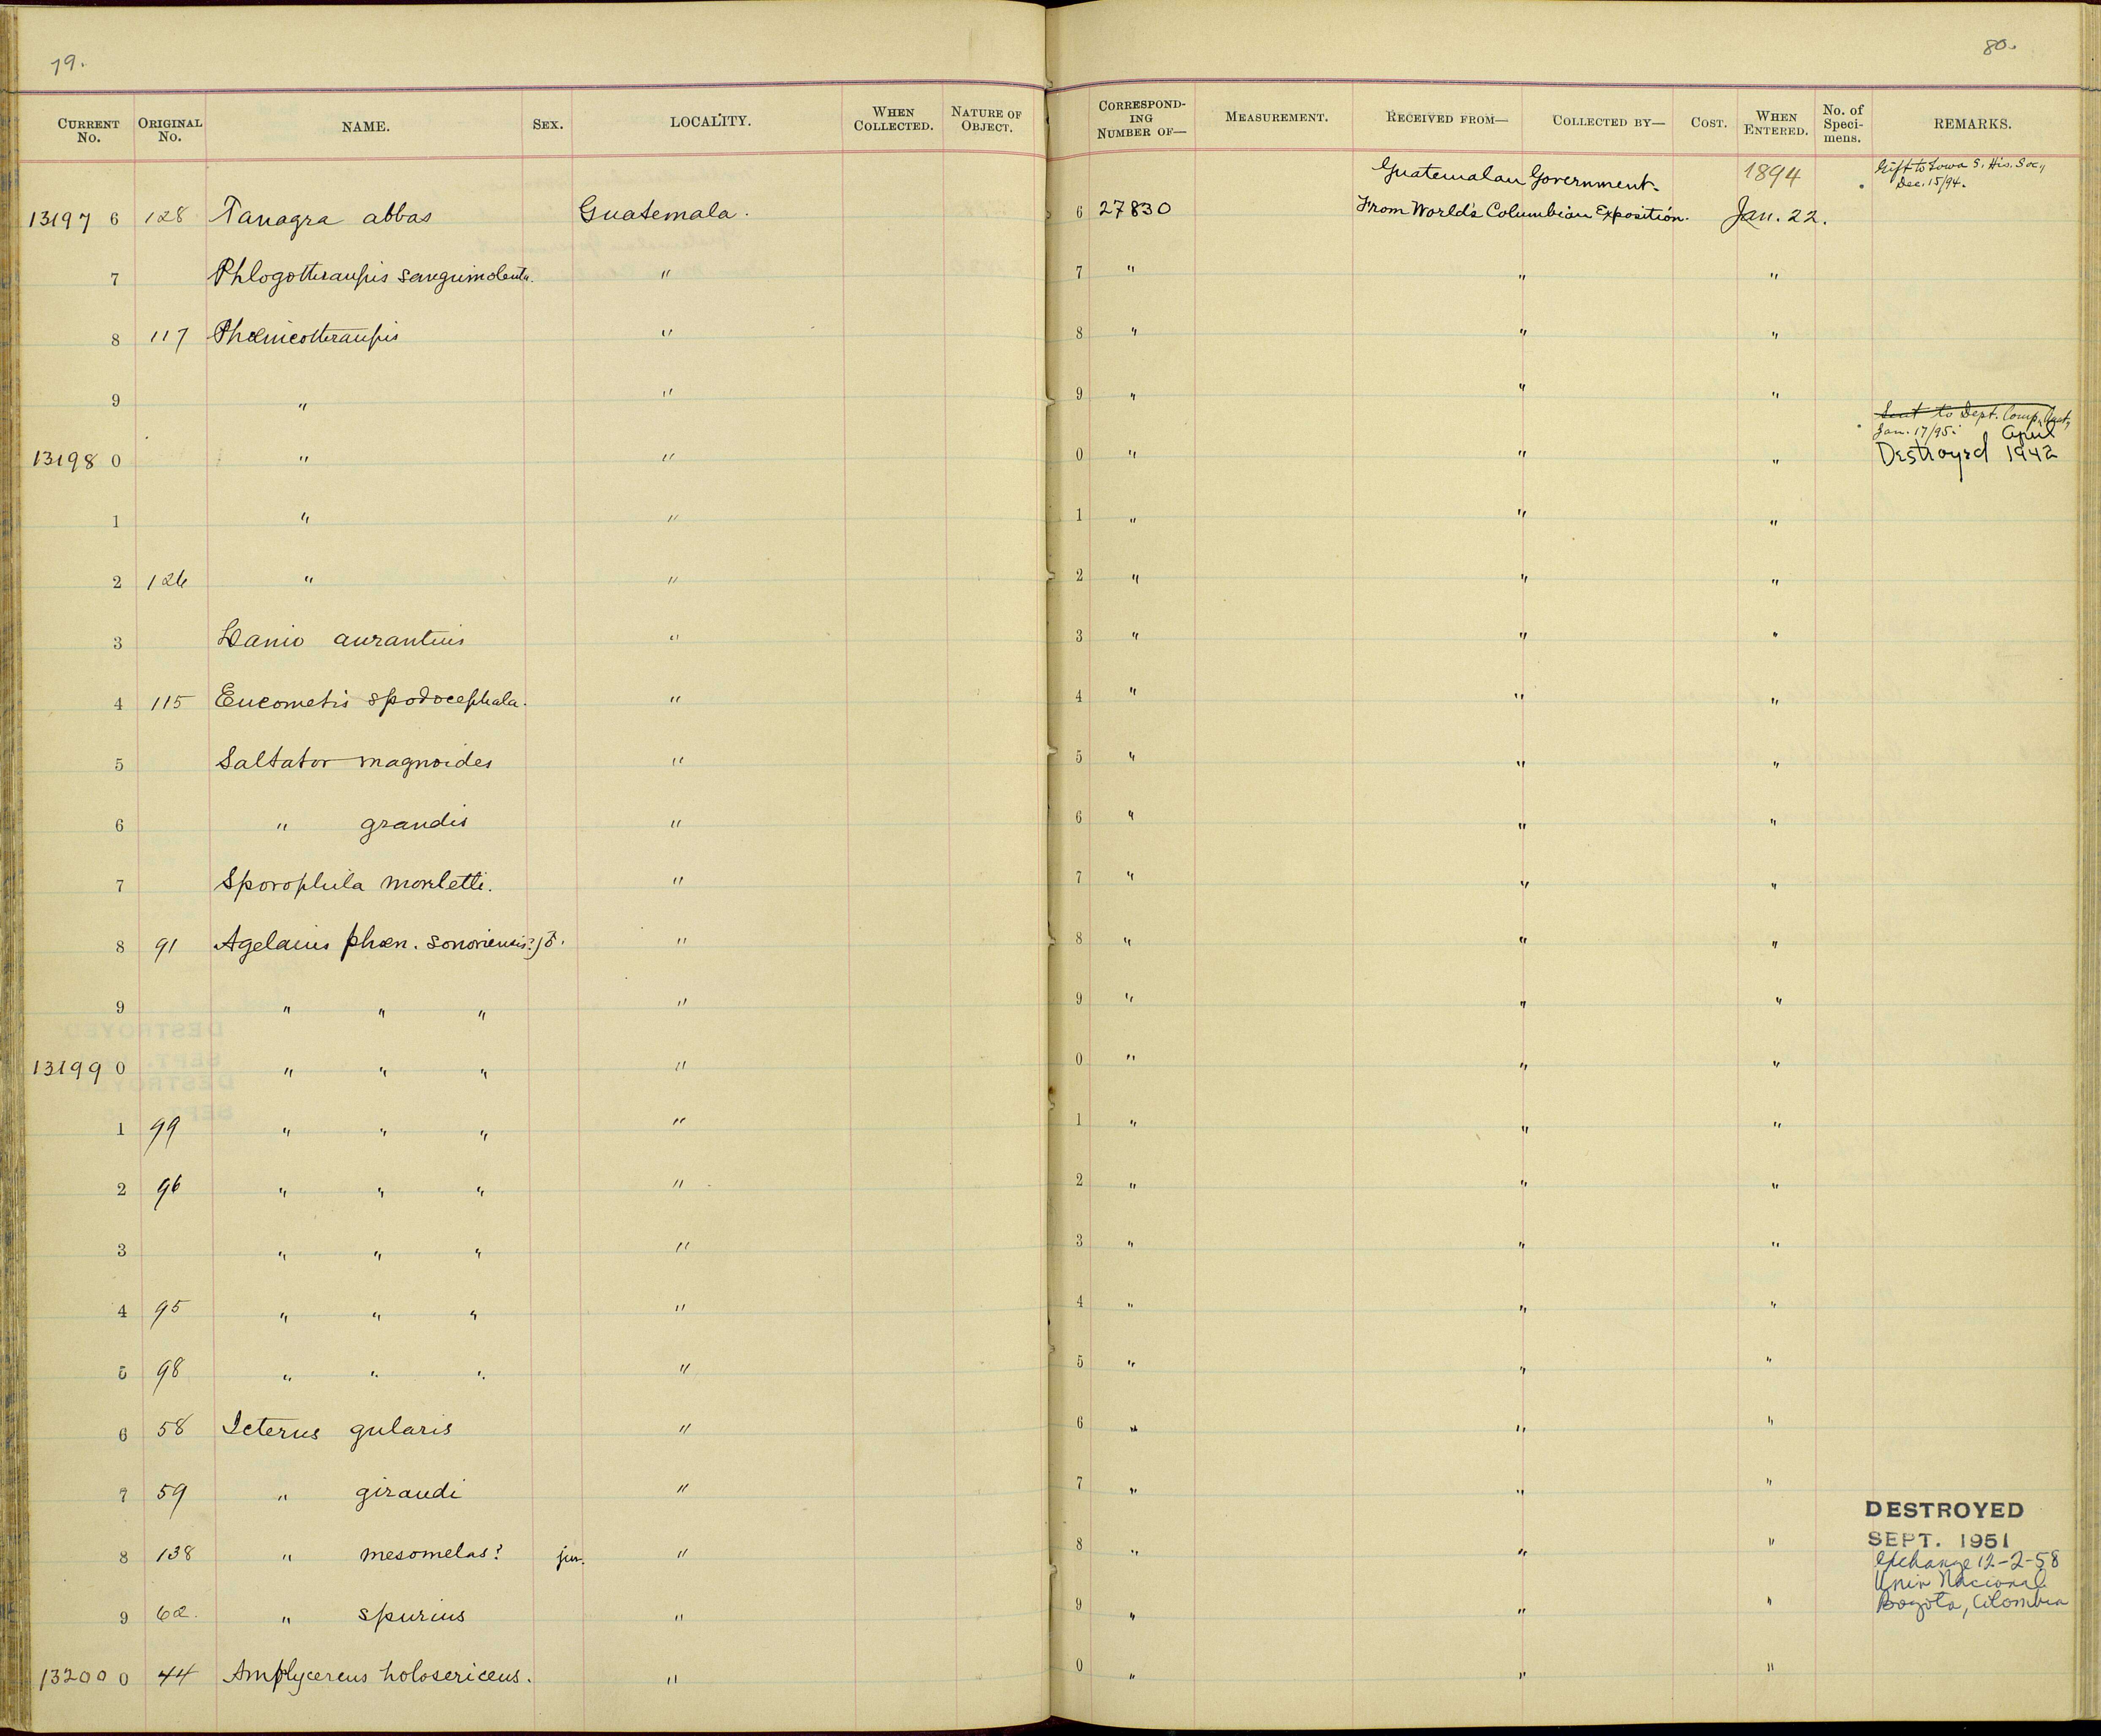 79.
80.
CURRENT No. ORIGINAL No. NAME. SEX. LOCALITY. WHEN COLLECTED. NATURE OF OBJECT. CORRESPONDING NUMBER OF— MEASUREMENT. RECEIVED FROM— COLLECTED BY— COST. WHEN ENTERED. No. of Specimens. REMARKS.
Guatemalan Government. 1894 Gift to Iowa S. His. Soc.,
Dec. 15/94.
13197 6 128 Tanagra abbas Guatemala. 6 27830 From World's Columbian Exposition. Jan. 22.
7 Phlogothraupis sanguinolenta. " 7 " " "
8 117 Phœnicothraupis " 8 " " "
9 " " 9 " " "
Sent to Dept. Comp. Anat,
Jan. 17/95. April
13198 0 " " 0 " " " Destroyed 1942
1 " " 1 " " "
2 126 " " 2 " " "
3 Lanio aurantius " 3 " " "
4 115 Eucometis spodocephala. " 4 " " "
5 Saltator magnoides " 5 " " "
6 " grandis " 6 " " "
7 Sporophila morletti. " 7 " " "
8 91 Agelaius phœn. sonoriensis? " 8 " " "
9 " " " " 9 " " "
13199 0 " " " " 0 " " "
1 99 " " " " 1 " " "
2 96 " " " " 2 " " "
3 " " " " 3 " " "
4 95 " " " " 4 " " "
5 98 " " " " 5 " " "
6 58 Icterus gularis " 6 " " "
7 59 " giraudi " 7 " " "
DESTROYED
SEPT. 1951
8 138 " mesomelas? juv. " 8 " " "
exchange 12-2-58
Univ Nacional
Bogota, Colombia
9 62. " spurius " 9 " " "
13200 0 44 Amplycercus holosericeus. " 0 " " "